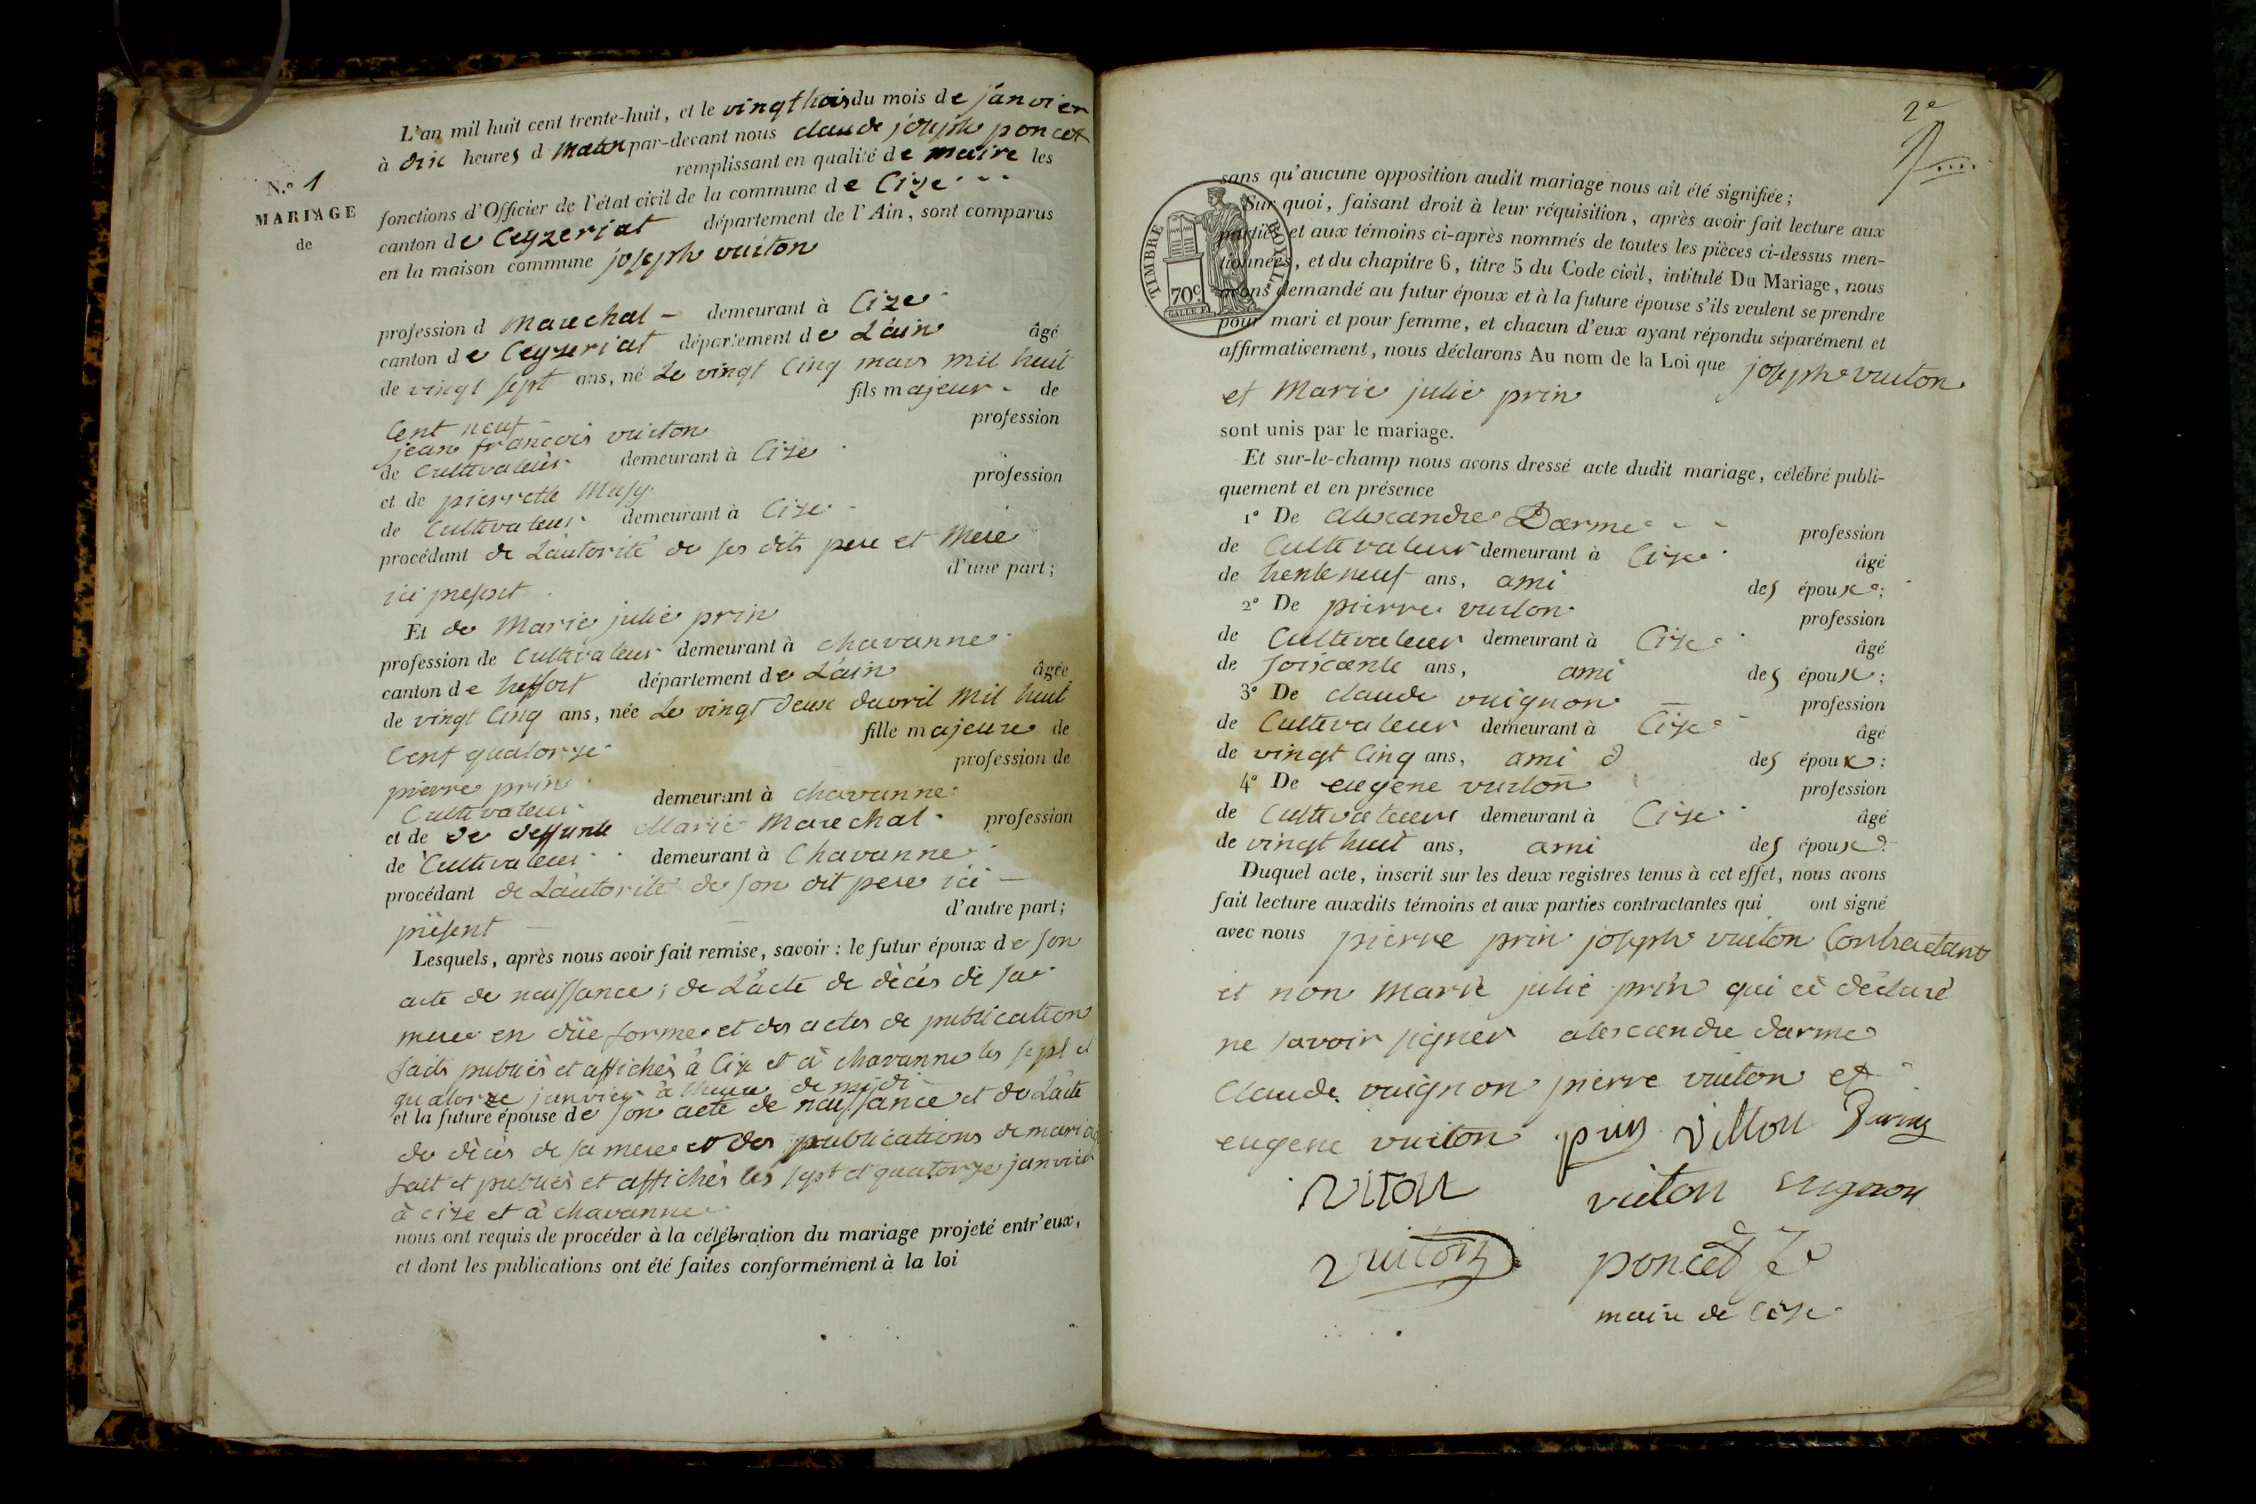 N.° 1
MARIAGE
de
L'an mil huit cent trente-huit, et le vingt trois du mois de janvier
à dix heures d matin par-devant nous claude joseph poncet
remplissant en qualité de maire les
fonctions d'Officier de l'état civil de la commune de Cize
canton de Ceyzeriat département de l'Ain, sont comparus
en la maison commune joseph vuiton
profession d Marechal demeurant à Cize
canton de Ceyzeriat département de L'ain âgé
de vingt sept ans, né Le vingt Cinq mars mil huit
Cent neuf fils majeur de
jean françois vuiton profession
de Cultivateur demeurant à Cize
et de pierrette Musy profession
de Cultivateur demeurant à Cize
procédant de L'autorité de ses dits pere et Mere
ici present d'une part;
Et de Marie julie prin
profession de Cultivateur demeurant à chavanne
canton de treffort département de L'ain âgée
de vingt Cinq ans, née Le vingt deux d'avril Mil huit
Cent quatorze fille majeure de
pierre prin profession de
Cultivateur demeurant à chavanne
et de de deffunte Marie Marechal profession
de Cultivateur demeurant à Chavanne
procédant de L'autorité de son dit pere ici
present d'autre part;
Lesquels, après nous avoir fait remise, savoir : le futur époux de son
acte de naissance; de L'acte de décès de sa
mere en düe forme et des actes de publication
faits publiés et affichés à Cize et à chavanne les sept et
quatorze janvier à l'heure de midi
et la future épouse de son acte de naissance et de L'acte
de décès de sa mere et des publications de mariag
fait et publiés et affichés les sept et quatorze janvier
à cize et à chavanne
nous ont requis de procéder à la célébration du mariage projeté entr'eux,
et dont les publications ont été faites conformément à la loi
2e
sans qu'aucune opposition audit mariage nous ait été signifiée;
Sur quoi, faisant droit à leur réquisition, après avoir fait lecture aux
parties et aux témoins ci-après nommés de toutes les pièces ci-dessus men-
tionnées, et du chapitre 6, titre 5 du Code civil, intitulé Du Mariage, nous
avons demandé au futur époux et à la future épouse s'ils veulent se prendre
pour mari et pour femme, et chacun d'eux ayant répondu séparément et
affirmativement, nous déclarons Au nom de la Loi que joseph vuiton
et Marie julie prin
TIMBRE ROYAL
70c
sont unis par le mariage.
Et sur-le-champ nous avons dressé acte dudit mariage, célébré publi-
quement et en présence
1° De alexandre Darme profession
de Cultivateur demeurant à Cize âgé
de trente neuf ans, ami des époux;
2° De pierre vuiton profession
de Cultivateur demeurant à Cize âgé
de soixante ans, ami des époux;
3° De claude vuignon profession
de Cultivateur demeurant à Cize âgé
de vingt Cinq ans, ami d des époux;
4° De eugene vuiton profession
de Cultivateur demeurant à Cize âgé
de vingt huit ans, ami des époux.
Duquel acte, inscrit sur les deux registres tenus à cet effet, nous avons
fait lecture auxdits témoins et aux parties contractantes qui ont signé
avec nous pierre prin joseph vuiton Contractant
et non marie julie prin qui à déclaré
ne savoir signer alexandre darme
Claude vuignon pierre vuiton et
eugene vuiton prin Vitton
vuiton
vuiton
poncet
maire de Cize